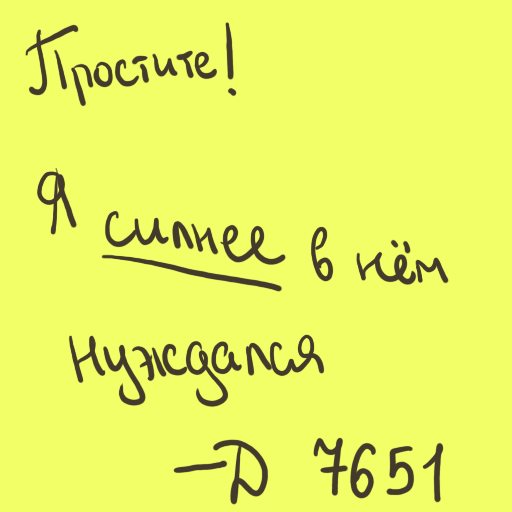 Простите!
Я силнее в нём
нуждался
—D 7651